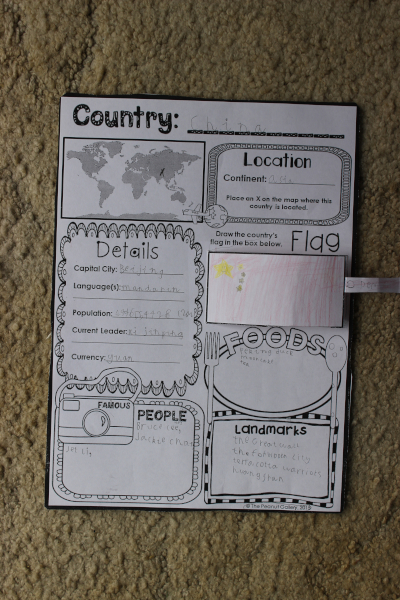 Country: China
Location
Continent: Asia
Place an X on the map where this
country is located.
Details
Capital City: Beijing
Language(s): mandarin
Population:
Current Leader: xi Jinping
Currency: yuan
Draw the country's
flag in the box below.
Flag
FOODS
FAMOUS
PEOPLE
Bruce Lee,
Jackie chan
Jet li,
Landmarks
the Great wall
the forbiden city
terracotta warriors
© The Peanut Gallery, 2013